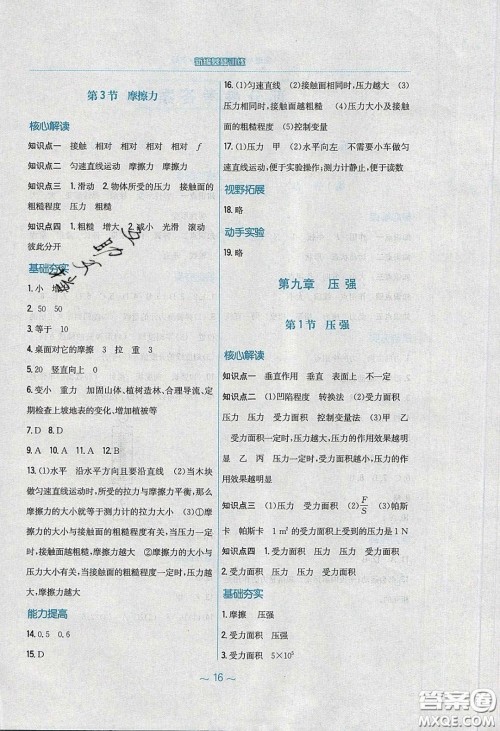 第3节 摩擦力
核心解读
知识点一 接触 相对 相对 相对 f
知识点二 匀速直线运动 摩擦力 摩擦力
知识点三 1.滑动 2.物体所受的压力 接触面的
粗糙程度 压力 粗糙
知识点四 1.粗糙 增大 2.减小 光滑 滚动
彼此分开
基础夯实
1.小 增
2. 50 50
3.等于 10
4.桌面对它的摩擦 3 拉 重 3
5. 20 竖直向上 0
6.变小 重力 加固山体、植树造林、合理导流、定
期检查上坡地表的变化、增加植被等
7. D 8. D
9. A 10. A 11. A 12. B
13. (1)水平 沿水平方向且要沿直线 (2)当木块
做匀速直线运动时,所受的拉力与摩擦力大小相等,那么
摩擦力的大小就等于测力计的示数大小 (3)①摩
擦力的大小与接触面的粗糙程度有关,当压力一定
时,接触面越粗糙,摩擦力越大 ②摩擦力的大小与
压力大小有关,当接触面的粗糙程度一定时,压力越
大,摩擦力越大
能力提高
14. 0.5 0.6
15. D
16. (1)匀速直线 (2)接触面相同时,压力越大 (3)
压力相同时,接触面越粗糙 (4)压力大小及接触
面的粗糙程度 (5)控制变量
17. (1)压力 甲 (2)水平向左 不需要小车做匀
速直线运动,便于实验操作;测力计静止,便于读数
视野拓展
18.略
动手实验
19.略
第九章 压强
第1节 压强
核心解读
知识点一 垂直作用 垂直 表面上 不一定
知识点二 (1)凹陷程度 转换法 (2)受力面积
压力 压力 受力面积 控制变量法 (3)甲
乙 受力面积一定时,压力越大,压力的作用效果越明
显 乙 丙 压力一定时,受力面积越小,压力的作
用效果越明显
知识点三 (1)压力 受力面积 (2)F/S (3)帕斯
卡 帕斯卡 1 m²的受力面积上受到的压力是1 N
知识点四 1.受力面积 压力 压力 受力面积
2.受力面积 压力 压力 受力面积
基础夯实
1.摩擦 压强
2.受力面积 压强
3.受力面积 5×10⁵
~ 16 ~
答案圈
MXQE.COM